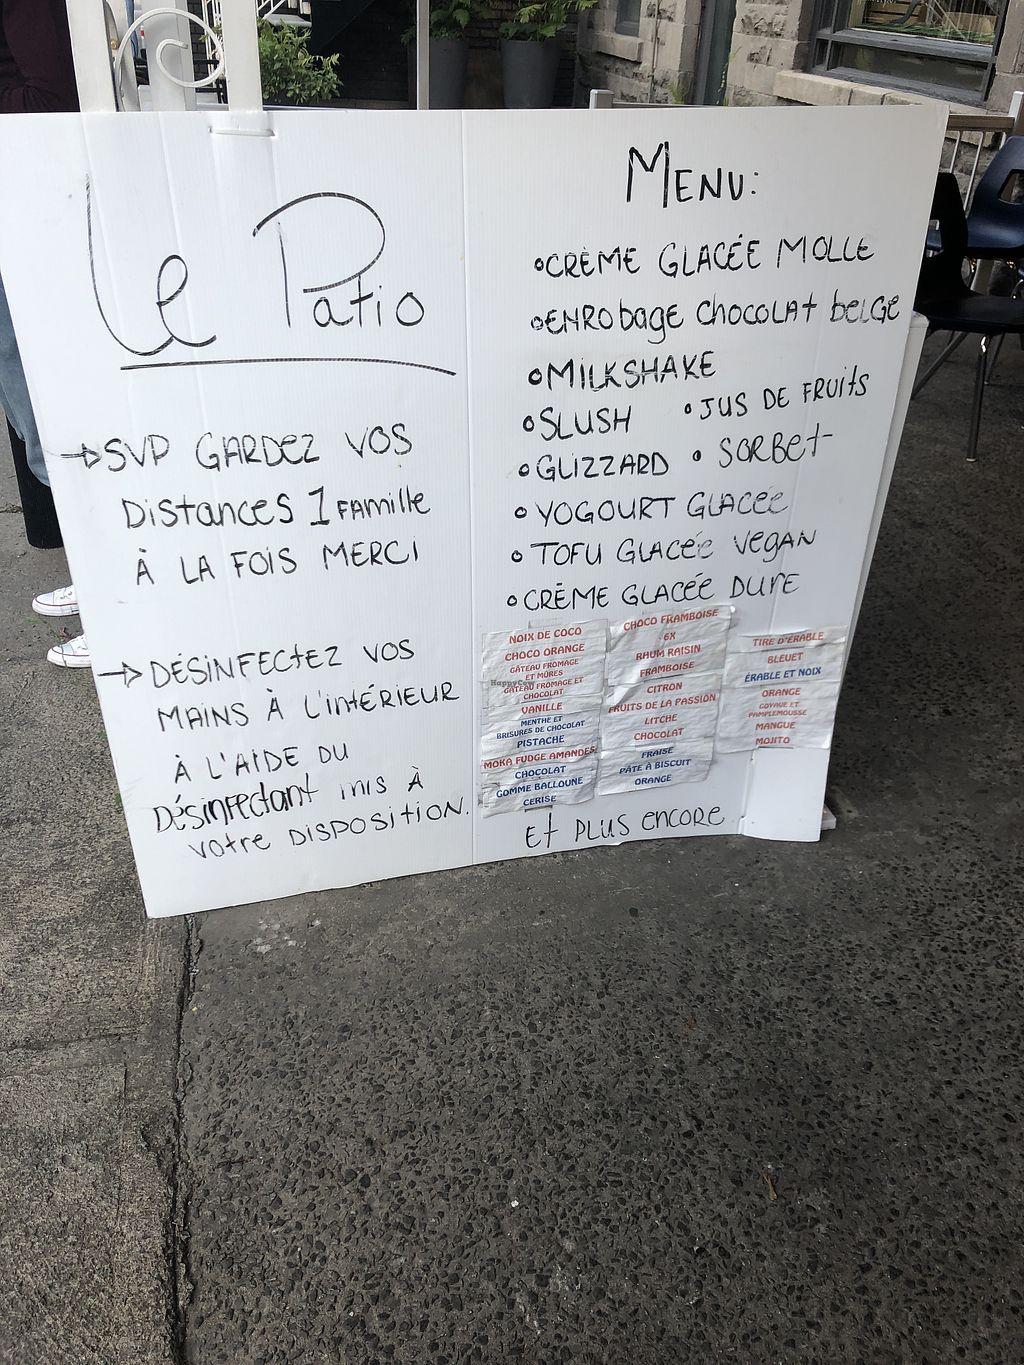 Le Patio
→ SVP GARDEZ VOS
DistANCES 1 FAMille
À LA FOIS MERCI
→ DÉSINFECtEZ VOS
MAINS À L'iNtÉRiEUR
À L'AIDE DU
Désinfectant mis À
votre DISPOSITION.
MENU:
•CRÈME GLACÉE MOLLE
•ENRobage CHOCOLAt beLGE
•MILKSHAKE
•SLUSH •JUS DE FRUits
•GLIZZARD •SORBEt
•YOGOURT GLACÉE
•TOFU GLACÉE VEGAN
•CRÈME GLACÉE DURE
NOIX DE COCO
CHOCO ORANGE
GÂTEAU FROMAGE
ET MÛRES
GÂTEAU FROMAGE ET
CHOCOLAT
VANILLE
MENTHE ET
BRISURES DE CHOCOLAT
PISTACHE
MOKA FUDGE AMANDES
CHOCOLAT
GOMME BALLOUNE
CERISE
CHOCO FRAMBOISE
6X
RHUM RAISIN
FRAMBOISE
CITRON
FRUITS DE LA PASSION
LITCHE
CHOCOLAT
FRAISE
PÂTE À BISCUIT
ORANGE
TIRE D'ÉRABLE
BLEUET
ÉRABLE ET NOIX
ORANGE
GOYAVE ET
PAMPLEMOUSSE
MANGUE
MOJITO
Et PLUS ENCORE
HappyCow